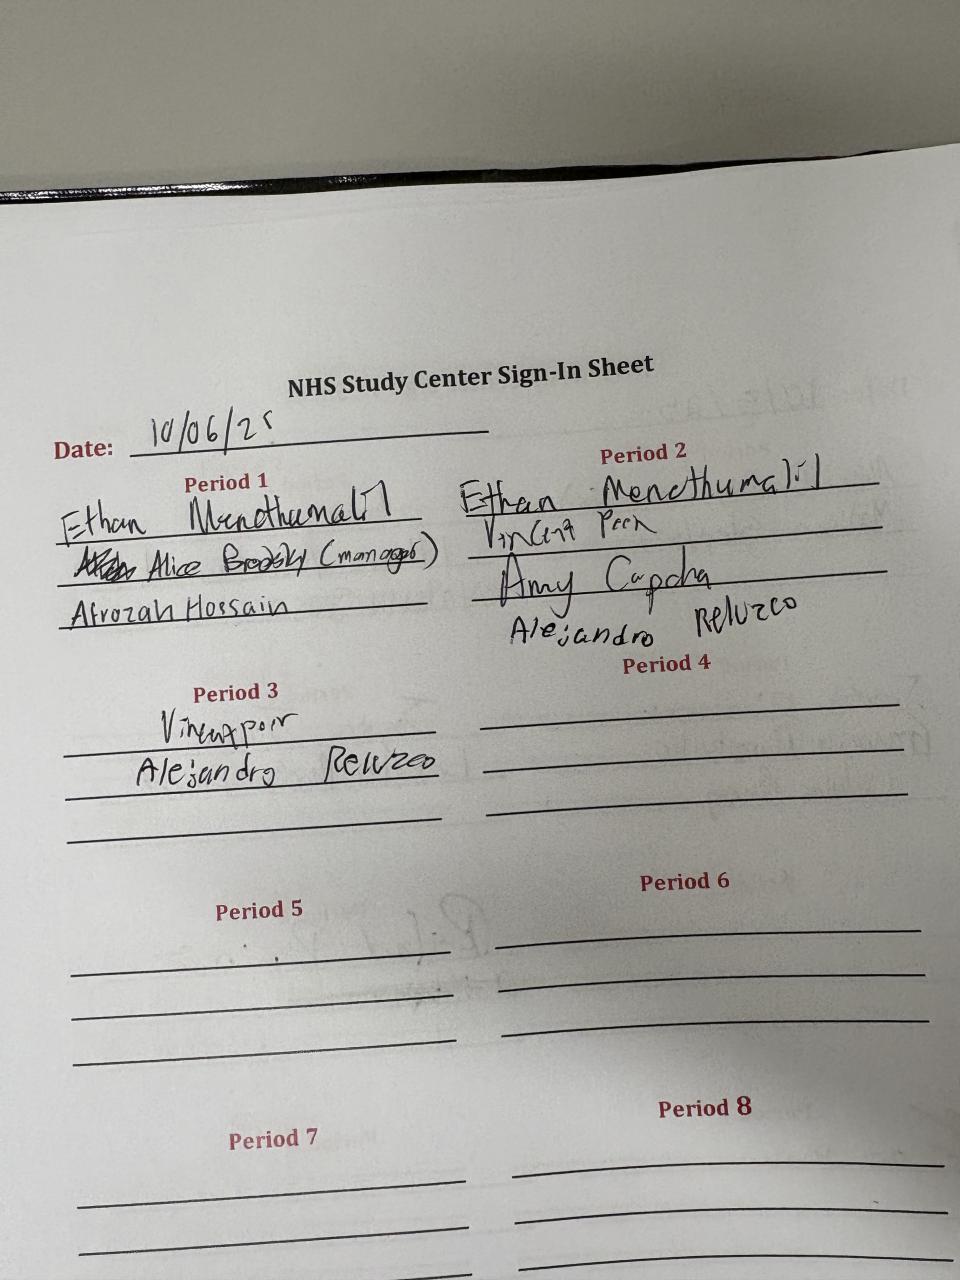 NHS Study Center Sign-In Sheet
Date: 10/06/25
Period 1
Ethan Menothumalil
Alice Brodsky (manager)
Afrozah Hossain
Period 2
Ethan Menothumalil
Vincent
Amy Capcha
Alejandro Reluzco
Period 3
Alejandro Reluzco
Period 4
Period 5
Period 6
Period 7
Period 8